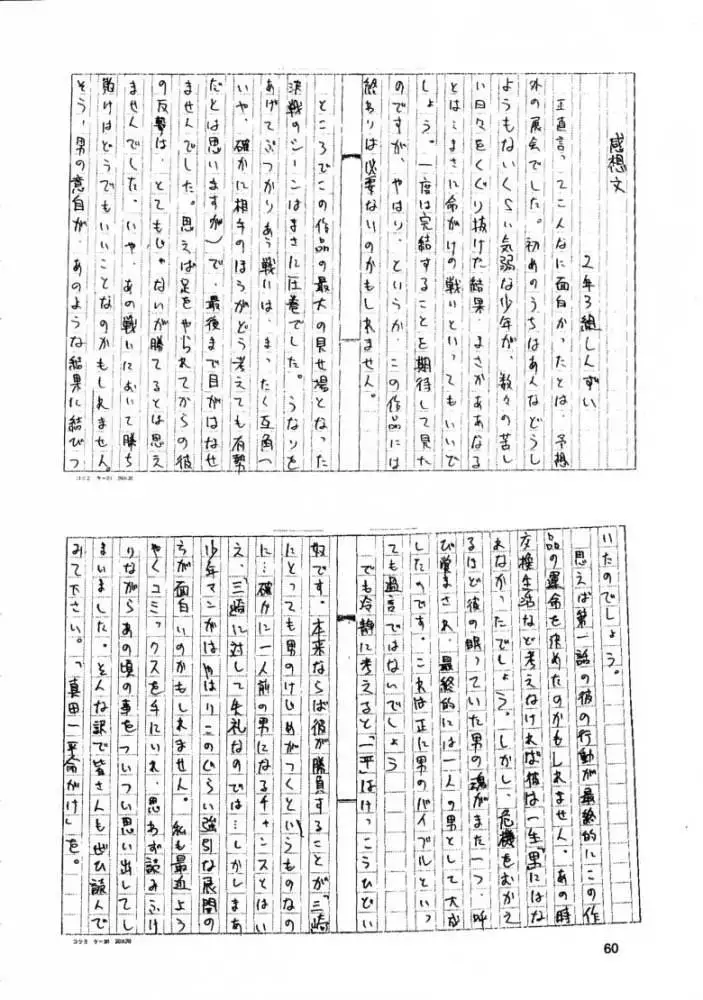 感想文
2年3組しんずい
正直言ってこんなに面白かったとは、予想
外の展会でした。初めのうちはあんなどうし
ようもないくらい気弱な少年が、数々の苦し
い日々をくぐり抜けた結果、まさかああなる
とは…まさに命がけの戦いといってもいいで
しょう。一度は完結することを期待して見た
のですが、やはり、というか、この作品には
終わりは必要ないのかもしれません。
ところでこの作品の最大の見せ場となった
決戦のシーンはまさに圧巻でした。うなりを
あげてぶつかりあう戦いは、まったく互角、
いや、確かに相手のほうがどう考えても有勢
だとは思いますが)で、最後まで目がはなせ
ませんでした。思えば足をやられてからの彼
の反勢は、とてもじゃないが勝てるとは思え
ませんでした。いや、あの戦いにおいて勝ち
敗けはどうでもいいことなのかもしれません。
そう、男の意自が、あのような結果に結びつ
コクヨ ケー31 20×20
いたのでしょう。
思えば第一話の彼の行動が最終的にこの作
品の運命を決めたのかもしれません。あの時
交換生活など考えなければ彼は一生"男"にはな
れなかったでしょう。しかし、危機をむかえ
るほど彼の眠っていた男の魂がまた一つ、呼
び覚まされ、最終的には一人の男として大成
したのです。これは正に男のバイブルといっ
ても過言ではないでしょう
でも冷静に考えると「一平」はけっこうひどい
奴です。本来ならば彼が勝負することが「三崎
にとっても男のけじめがつくというものなの
に…確かに一人前の男になるチャンスとはい
え、「三崎に対して失礼なのでは…しかしまあ
少年マンガはやはりこのぐらい強引な展開の
ちが面白いのかもしれません。私も最近よう
やくコミックスを手にいれ、思わず読みふけ
りながらあの頃の事をついつい思い出してし
まいました。そんな訳で皆さんも是ひ読んで
みて下さい。「真田一平命がけ」を。
コクヨ ケー31 20×20
60